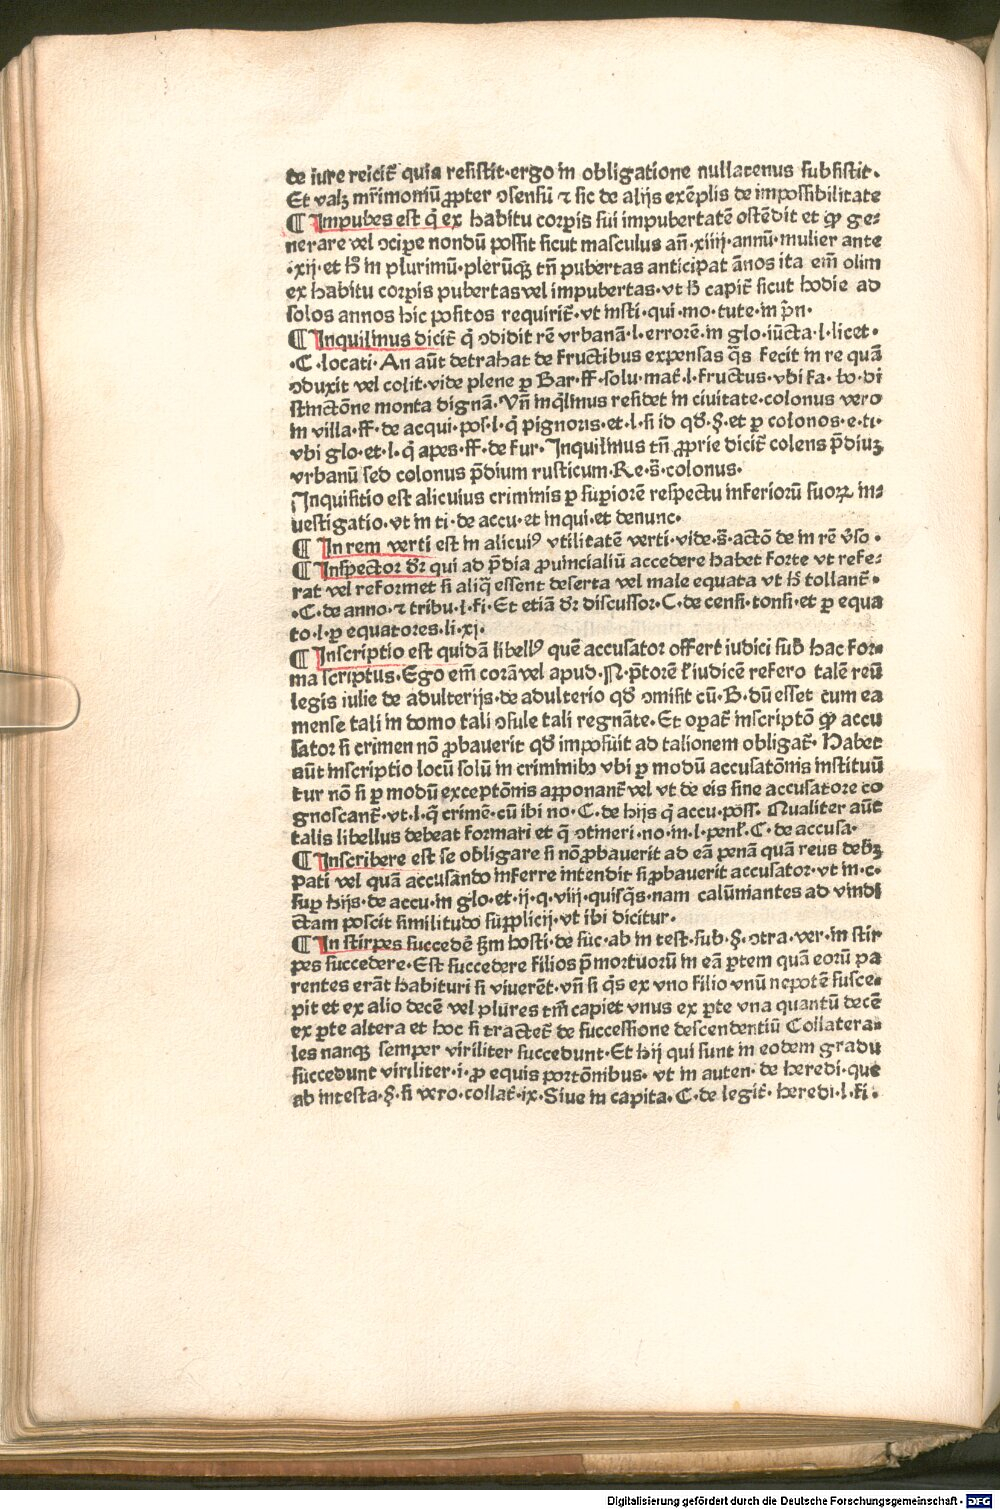 de iure reicit᷑ quia resistit·ergo in obligatione nullatenus subsistit·
Et valꝫ mr̄imoniū ꝓpter ↄsensū ⁊ sic de alijs exēplis de impossibilitate
¶ Impubes est q̄ ex habitu corꝑis sui impubertatē ostēdit et ꝙ ge⸗
nerare vel ↄciꝑe nondū possit sicut masculus an̄·xiiij·annū·mulier ante
·xij·et hͦ in plurimū·plerūqꝫ tn̄ pubertas anticipat ānos ita em̄ olim
ex habitu corꝑis pubertas vel impubertas·vt hͦ capit᷑ sicut hodie ad
solos annos hic positos requirit᷑·vt insti·qui·mo·tute·in p̄n·
¶ Inquilinus dicit᷑ q̄ ↄdidit rē vrbanā·l·errorē·in glo·iūcta·l·licet·
·C·locati·An aūt detrahat de fructibus expensas q̄s fecit in re quā
ↄduxit vel colit·vide plene ꝑ Bar·ff·solu·mat᷑·l·fructus·vbi fa·ho·di
stinctōne monta dignā·Vn̄ inq̄linus residet in ciuitate·colonus vero
in villa·ff·de acqui·pos·l·q̄ pignoris·et·l·si id qd̄·§·et ꝑ colonos·e·ti·
vbi glo·et·l·q̄ apes·ff·de fur·Inquilinus tn̄ ꝓprie dicit᷑ colens p̄diuꝫ
vrbanū sed colonus p̄dium rusticum·Re·s̄·colonus·
Inquisitio est alicuius criminis ꝑ suꝑiorē respectu inferiorū suoꝝ in⸗
uestigatio·vt in ti·de accu·et inqui·et denunc·
¶ In rem verti est in alicuiꝰ vtilitatē verti·vide·s̄·actō de in rē v̄so·
¶ Inspector dr̄ qui ad p̄dia ꝓuincialiū accedere habet forte vt refe⸗
rat vel reformet si aliq̄ essent deserta vel male equata vt hͦ tollant᷑·
·C·de anno·⁊ tribu·l·fi·Et etiā dr̄ discussor·C·de censi·tonsi·et ꝑ equa
to·l·ꝑ equatores·li·xj·
¶ Inscriptio est quidā libellꝰ quē accusator offert iudici sub hac for⸗
ma scriptus·Ego em̄ corā vel apud·N·p̄torē ł iudicē refero talē reū
legis iulie de adulterijs·de adulterio qd̄ ↄmisit cū·B·dū esset cum ea
mense tali in domo tali ↄsule tali regnāte·Et oꝑat᷑ inscriptō ꝙ accu
sator si crimen nō ꝓbauerit qd̄ imposuit ad talionem obligat᷑·Habet
aūt inscriptio locū solū in criminibꝰ vbi ꝑ modū accusatōnis instituū
tur nō si ꝑ modū exceptōnis apponant᷑ vel vt de eis sine accusatore co
gnoscant᷑·vt·l·q̄ crimē·cū ibi no·C·de hijs q̄ accu·poss·Qualiter aūt
talis libellus debeat formari et q̄ ↄtineri·no·in·l·penł·C·de accusa·
¶ Inscribere est se obligare si nō ꝓbauerit ad eā penā quā reus debꝫ
pati vel quā accusando inferre intendit si ꝓbauerit accusator·vt in·c·
suꝑ hijs·de accu·in glo·et·ij·q·viij·quisq̄s·nam calūniantes ad vindi
ctam poscit similitudo supplicij·vt ibi dicitur·
¶ In stirpes succedē ẜm hosti·de suc·ab in test·sub·§·ↄtra·ver·in stir
pes succedere·Est succedere filios p̄mortuorū in eā ꝑtem quā eorū pa
rentes erāt habituri si viuerēt·vn̄ si q̄s ex vno filio vnū nepotē susce⸗
pit et ex alio decē vel plures tm̄ capiet vnus ex ꝑte vna quantū decē
ex ꝑte altera et hoc si tractet᷑ de successione descendentiū Collatera⸗
les nanqꝫ semper viriliter succedunt·Et hij qui sunt in eodem gradu
succedunt viriliter·i·ꝓ equis portōnibus·vt in auten·de heredi·que
ab intesta·§·si vero·collat᷑·ix·Siue in capita·C·de legit᷑·heredi·l·fi·
Digitalisierung gefördert durch die Deutsche Forschungsgemeinschaft - DFG